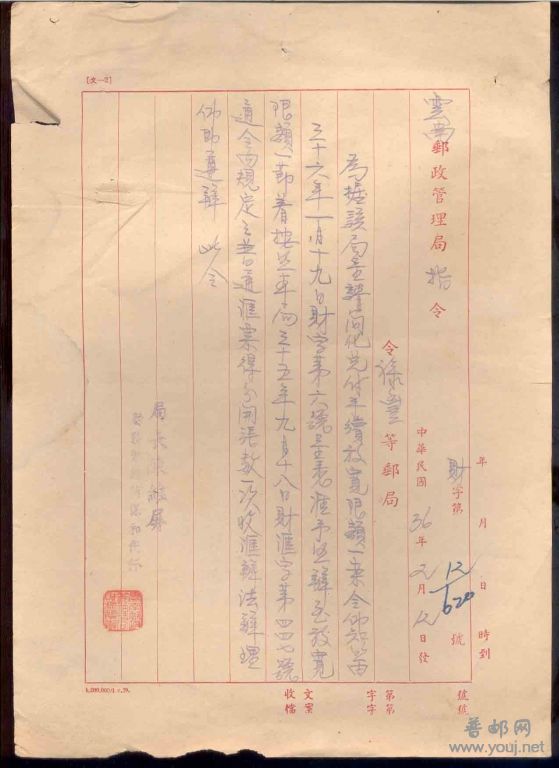 [文—2]
雲南郵政管理局指令
年 月 日 時到
財字第 12/620 號
中華民國36年2月12日發
令 祿豐 等郵局
為據該局呈擬簡化兌付手續放寬限額一案令仰知照由
三十六年一月十九日財字第六號呈悉准予照辦至放寬
限額一節着按照本局三十五年九月十八日財匯字第四四七號
通令內規定之普通匯票得分開張數一次收匯辦法辦理
仰即遵辦 此令
局長陳
收文 字第 號
檔案 字第 號
普邮网
www.youj.net